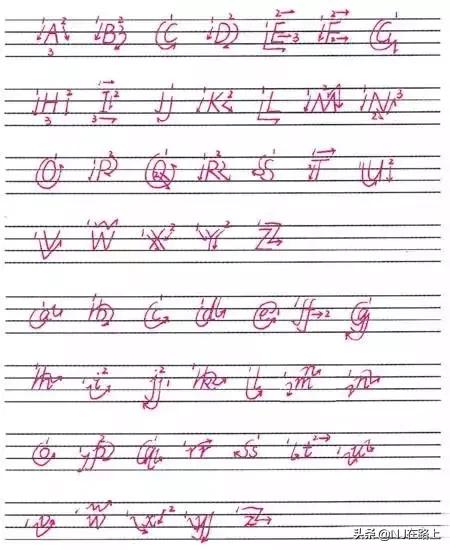 A B C D E F G
H I J K L M N
O P Q R S T U
V W X Y Z
a b c d e f g
h i j k l m n
o p q r s t u
v w x y z
头条 @NJ在路上